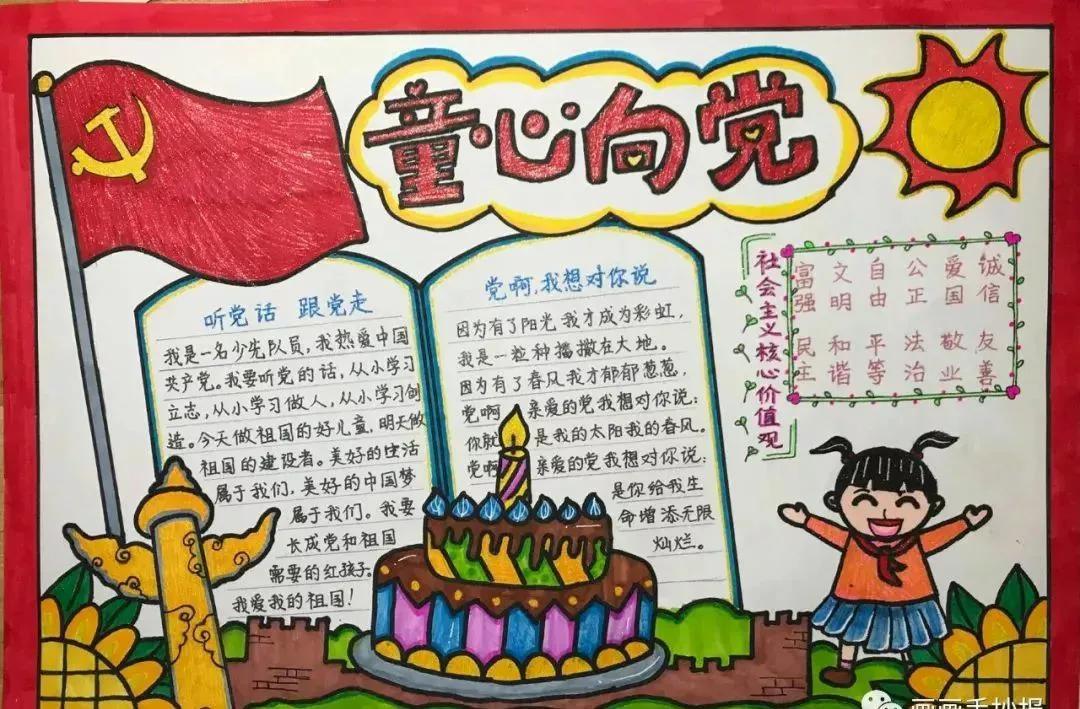 童心向党
听党话 跟党走
我是一名少先队员,我热爱中国
共产党。我要听党的话,从小学习
立志,从小学习做人,从小学习创
造。今天做祖国的好儿童,明天做
祖国的建设者。美好的生活
属于我们,美好的中国梦
属于我们。我要
长成党和祖国
需要的红孩子。
我爱我的祖国!
党啊,我想对你说
因为有了阳光我才成为彩虹,
我是一粒种播撒在大地。
因为有了春风我才郁郁葱葱,
党啊 亲爱的党我想对你说:
你就 是我的太阳我的春风。
党啊 亲爱的党我想对你说:
是你给我生
命增添无限
灿烂。
社会主义核心价值观
富强 文明 自由 公正 爱国 诚信
民主 和谐 平等 法治 敬业 友善
画画手抄报